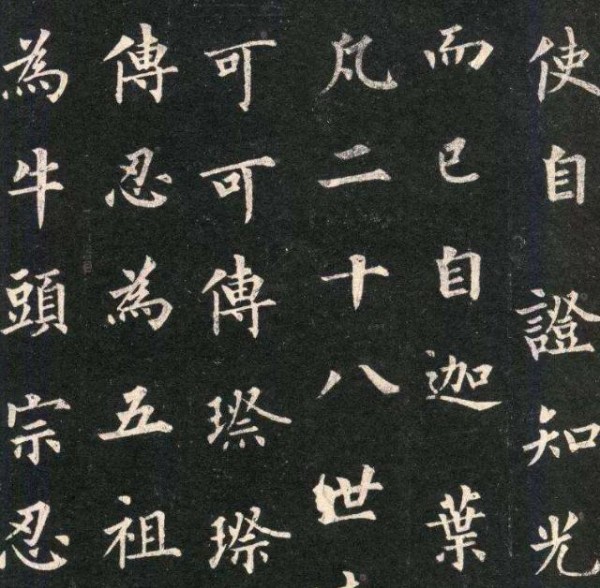 使自證知光
而已自迦葉
凡二十八世
可可傳璨璨
傳忍為五祖
為牛頭宗忍